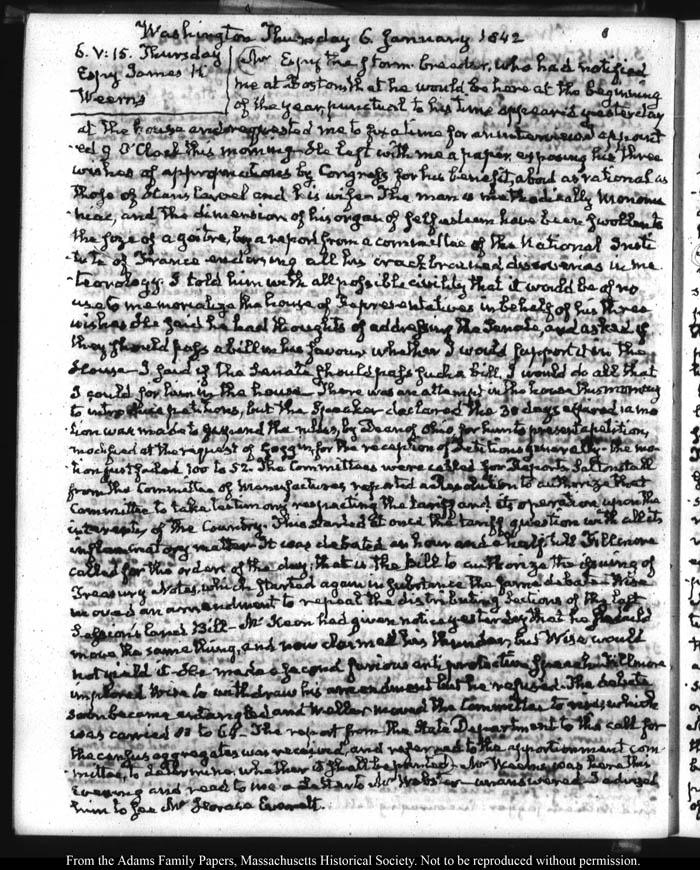 Washington Thursday 6. January 1842
6. V: 15. Thursday
Espy James H
Weems
Mr Espy the storm breeder, who had notified
me at Boston that he would be here at the beginning
of the year, punctual to his time appeared yesterday
at the house and requested me to fix a time for an interview I appoint
ed 9 O'Clock this morning. He left with me a paper exposing his three
wishes of appropriations by Congress for his benefit, about as rational as
those of Hans Carvel and his wife. The man is methodically monoma
niac, and the dimension of his organ of self esteem have been swollen to
the size of a goitre, by a report from a committee of the National Insti
tute of France endorsing all his crack brained discoveries in me
teorology. I told him with all possible civility that it would be of no
use to memorialize the house of Representatives in behalf of his three
wishes. He said he had thoughts of addressing the Senate, and asked if
they should pass a bill in his favour whether I would support it in the
House. I said if the Senate should pass such a bill, I would do all that
I could for him in the house. There was an attempt in the house this morning
to introduce petitions, but the Speaker declared the 30 days expired a mo
tion was made to suspend the rules, by Dean of Ohio for him to present a petition,
modified at the request of Goggin, for the reception of Petitions generally. the mo
tion just failed 100 to 52. The Committees were called for Reports. Saltonstall
from the Committee of Manufactures reported a Resolution to authorize that
Committee to take testimony respecting the tariff and its operation upon the
interests of the Country. This started at once the tariff question with all its
inflammatory matter. It was debated an hour and a half till Fillmore
called for the orders of the day; that is the Bill to authorize the issuing of
Treasury Notes, which started again in substance the same debate. Wise
moved an amendment to repeal the distributing sections of the last
Session's Land Bill— McKeon had given notice yesterday that he should
move the same thing, and now claimed his thunder; but Wise would
not yield it. He made a second furious anti protective speech. Fillmore
implored Wise to withdraw his amendment but he refused. The debate
soon became entangled and Weller moved the Committee to rise, which
was carried to 68— The report from the State Department to the call for
the census aggregates was received, and referred to the apportionment com
mittee, to determine whether it shall be printed. Mr Weems was here this
Evening and read to me a Letter to Mr Webster— unanswered. I advised
him to see Mr Horace Everett.
From the Adams Family Papers, Massachusetts Historical Society. Not to be reproduced without permission.